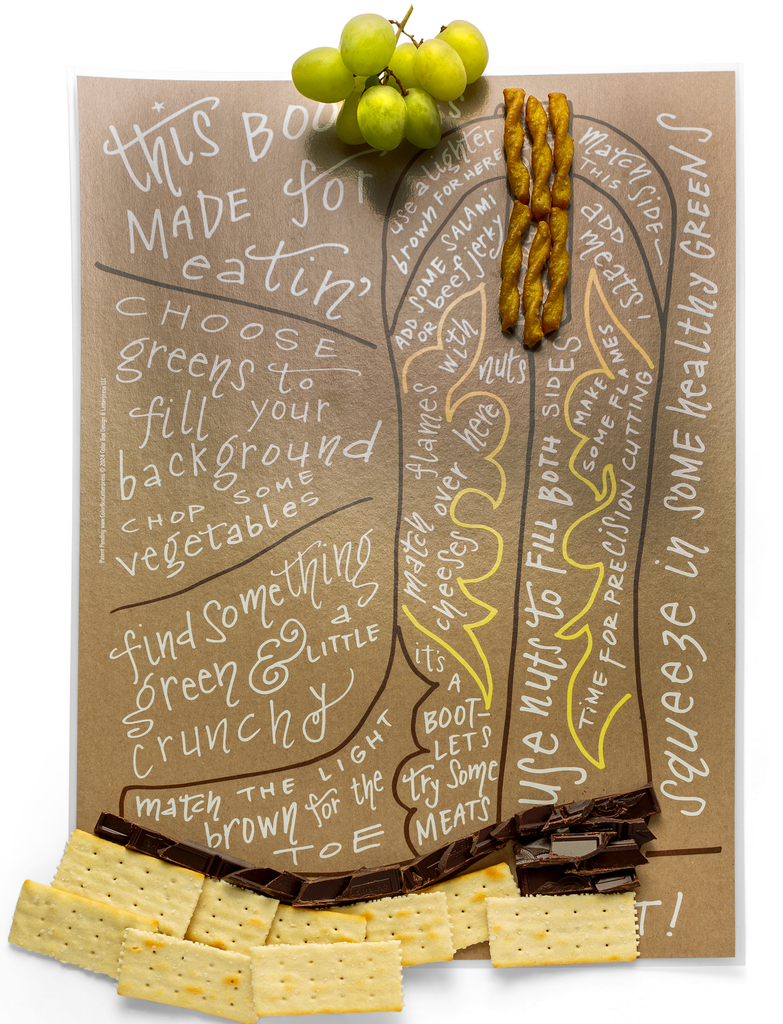 this BOO
MADE for
eatin'
CHOOSE
greens to
fill your
background
CHOP SOME
vegetables
find something
green & a
LITTLE
crunchy
match THE LIGHT
brown for the
TOE
use a lighter
brown FOR HERE
ADD SOME SALAMI
OR beef jerky
match flames with
cheeses over here
nuts
it's
A
BOOT-
LETS
try some
MEATS
use nuts to FILL BOTH SIDES
match
THIS SIDE—
ADD
meats!
MAKE
SOME FLAMES
TIME FOR PRECISION CUTTING
squeeze in SOME healthy GREENS
T!
Patent Pending www.ColorBoxLetterpress © 2024 Color Box Design & Letterpress LLC